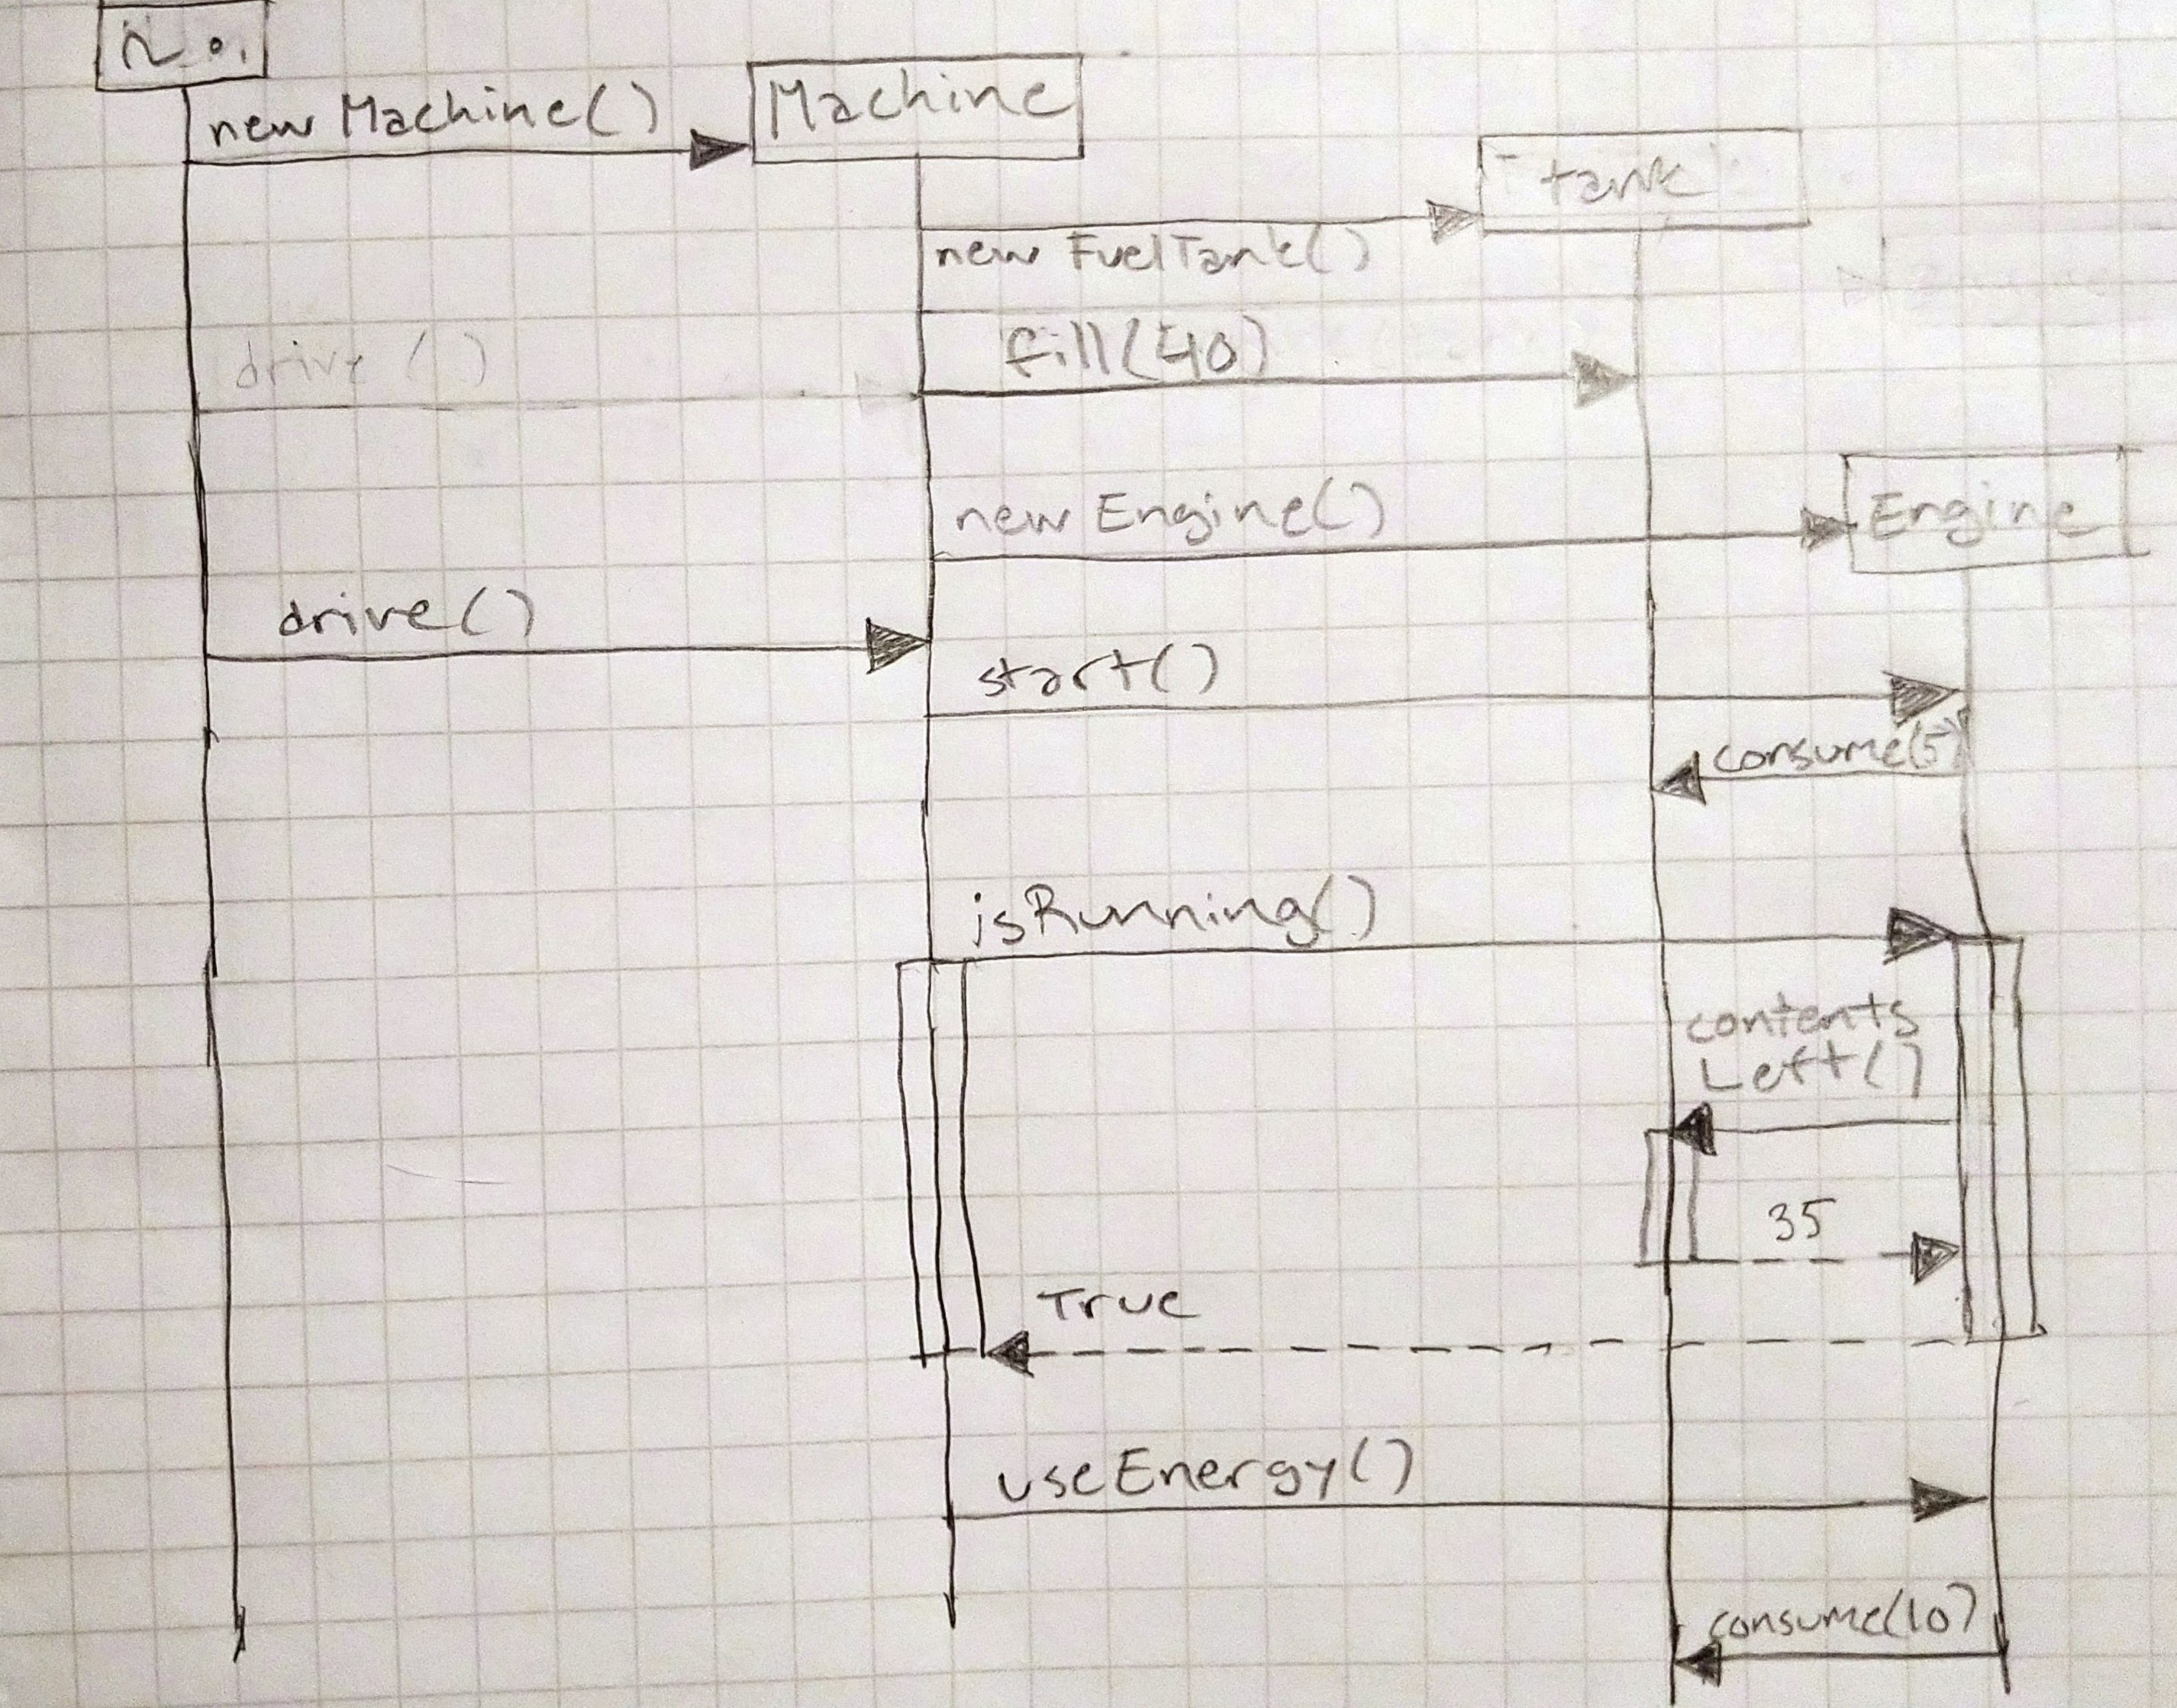 new Machine()
Machine
tank
new FuelTank()
drive ()
fill(40)
new Engine()
Engine
drive()
start()
consume(5)
isRunning()
contents
Left()
35
True
useEnergy()
consume(10)